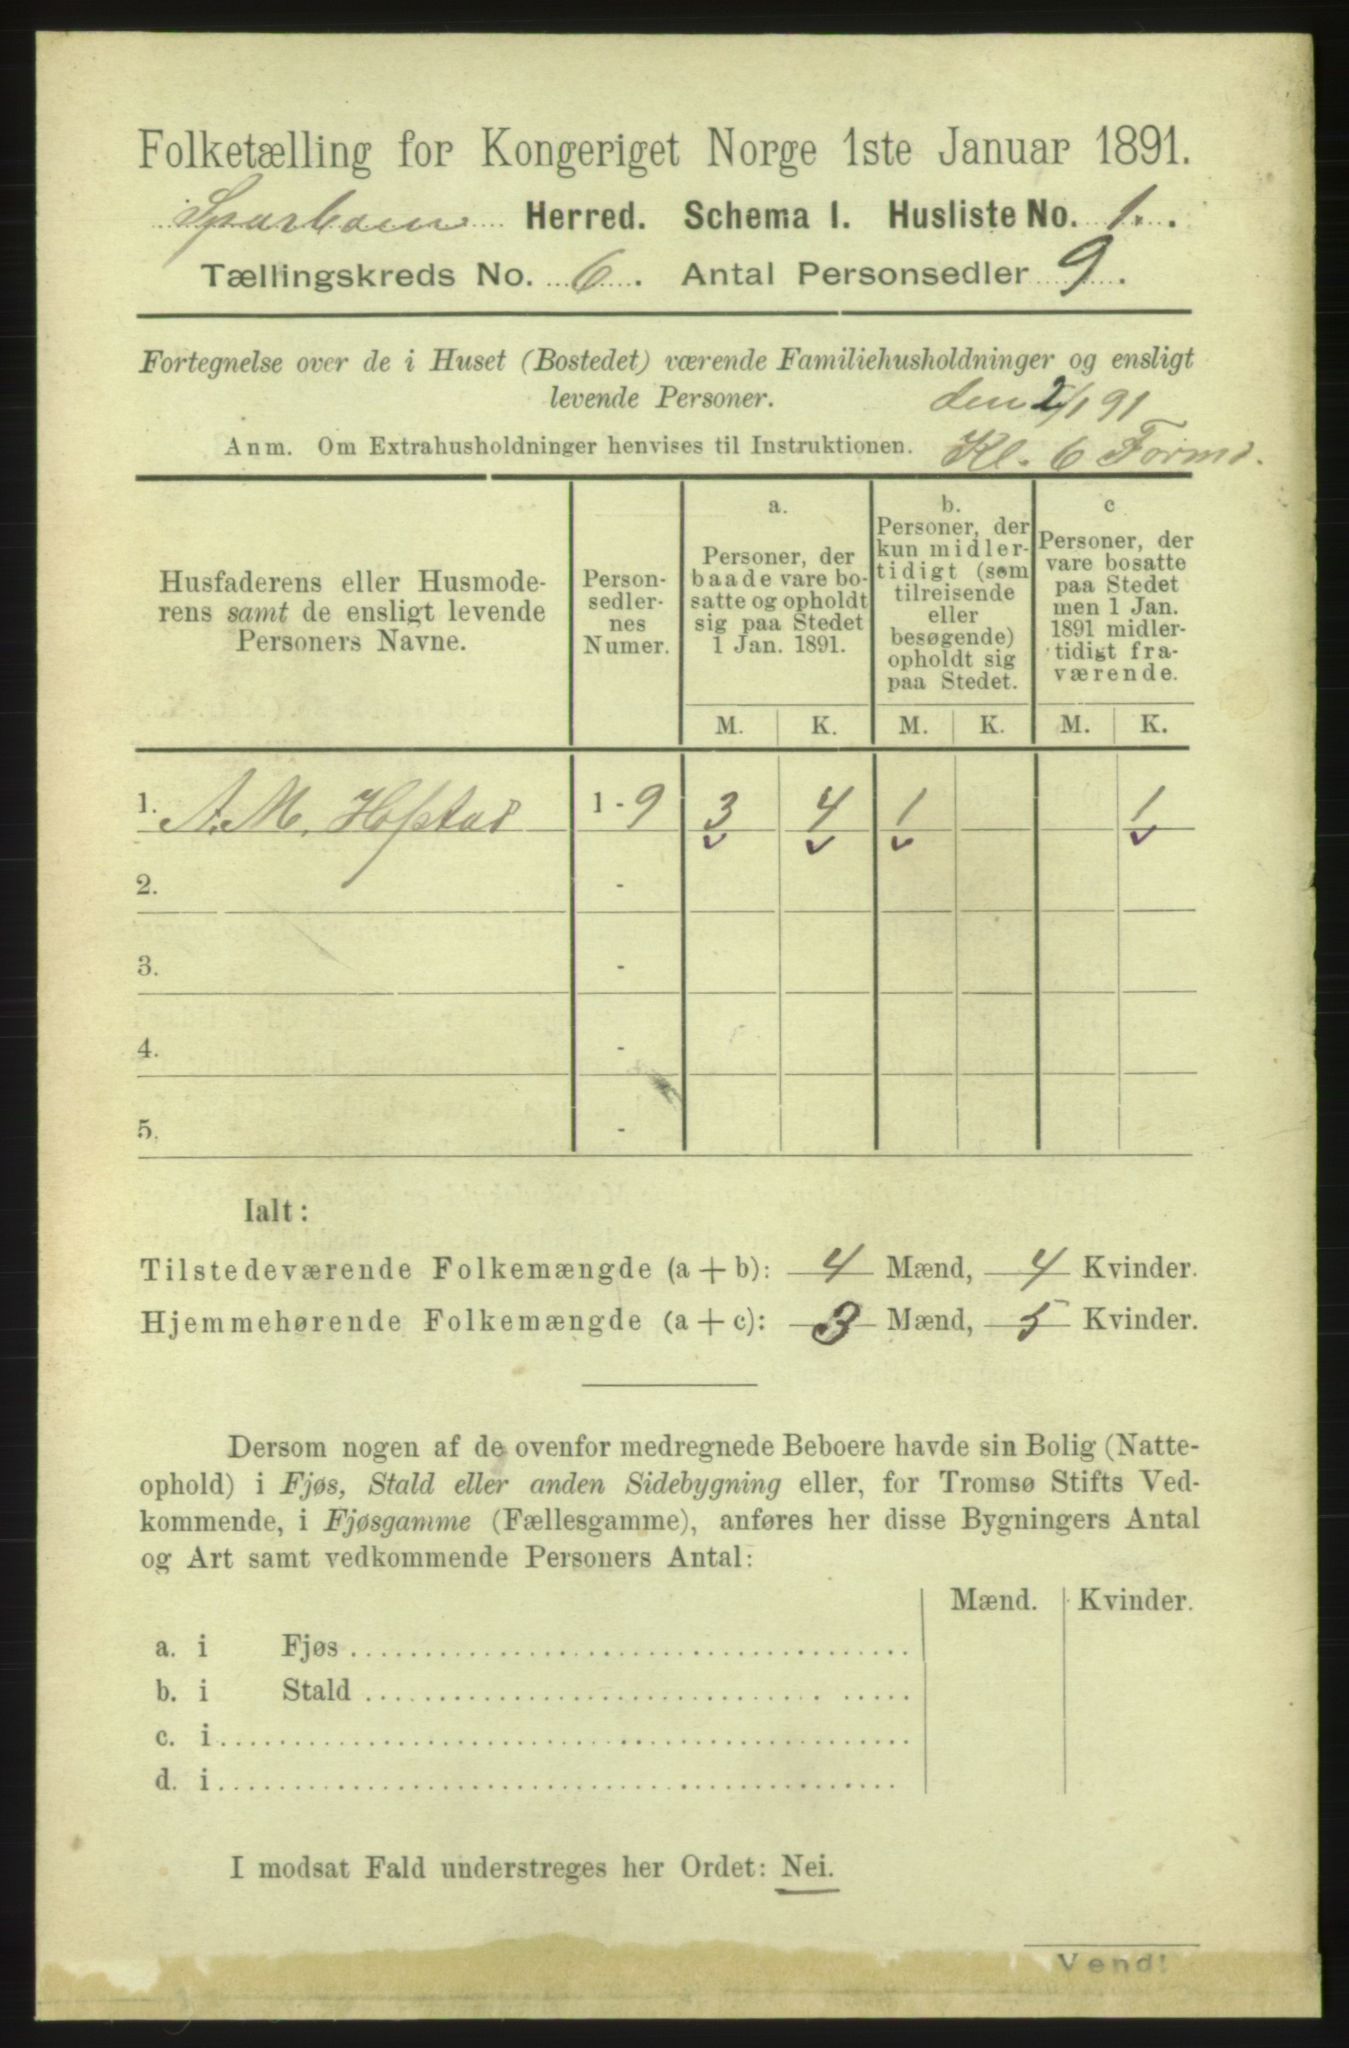 Folketælling for Kongeriget Norge 1ste Januar 1891.
Sparboen Herred. Schema I. Husliste No. 1.
Tællingskreds No. 6. Antal Personsedler 9.
Fortegnelse over de i Huset (Bostedet) værende Familiehusholdninger og ensligt
levende Personer. den 2/1 91
Anm. Om Extrahusholdninger henvises til Instruktionen. Kl. 6 Formd.
Husfaderens eller Husmode-
rens samt de ensligt levende
Personers Navne.
Person-
sedler-
nes
Numer.
a.
Personer, der
baade vare bo-
satte og opholdt
sig paa Stedet
1 Jan. 1891.
b.
Personer, der
kun midler-
tidigt (som
tilreisende
eller
besøgende)
opholdt sig
paa Stedet.
c
Personer, der
vare bosatte
paa Stedet
men 1 Jan.
1891 midler-
tidigt fra-
værende.
M. K. M. K. M. K.
1. A. M. Hoptad 1 - 9 3 4 1 1
2. -
3. -
4. -
5. -
Ialt:
Tilstedeværende Folkemængde (a + b): 4 Mænd, 4 Kvinder.
Hjemmehørende Folkemængde (a + c): 3 Mænd, 5 Kvinder.
Dersom nogen af de ovenfor medregnede Beboere havde sin Bolig (Natte-
ophold) i Fjøs, Stald eller anden Sidebygning eller, for Tromsø Stifts Ved-
kommende, i Fjøsgamme (Fællesgamme), anføres her disse Bygningers Antal
og Art samt vedkommende Personers Antal:
Mænd. Kvinder.
a. i Fjøs
b. i Stald
c. i
d. i
I modsat Fald understreges her Ordet: Nei.
Vend!